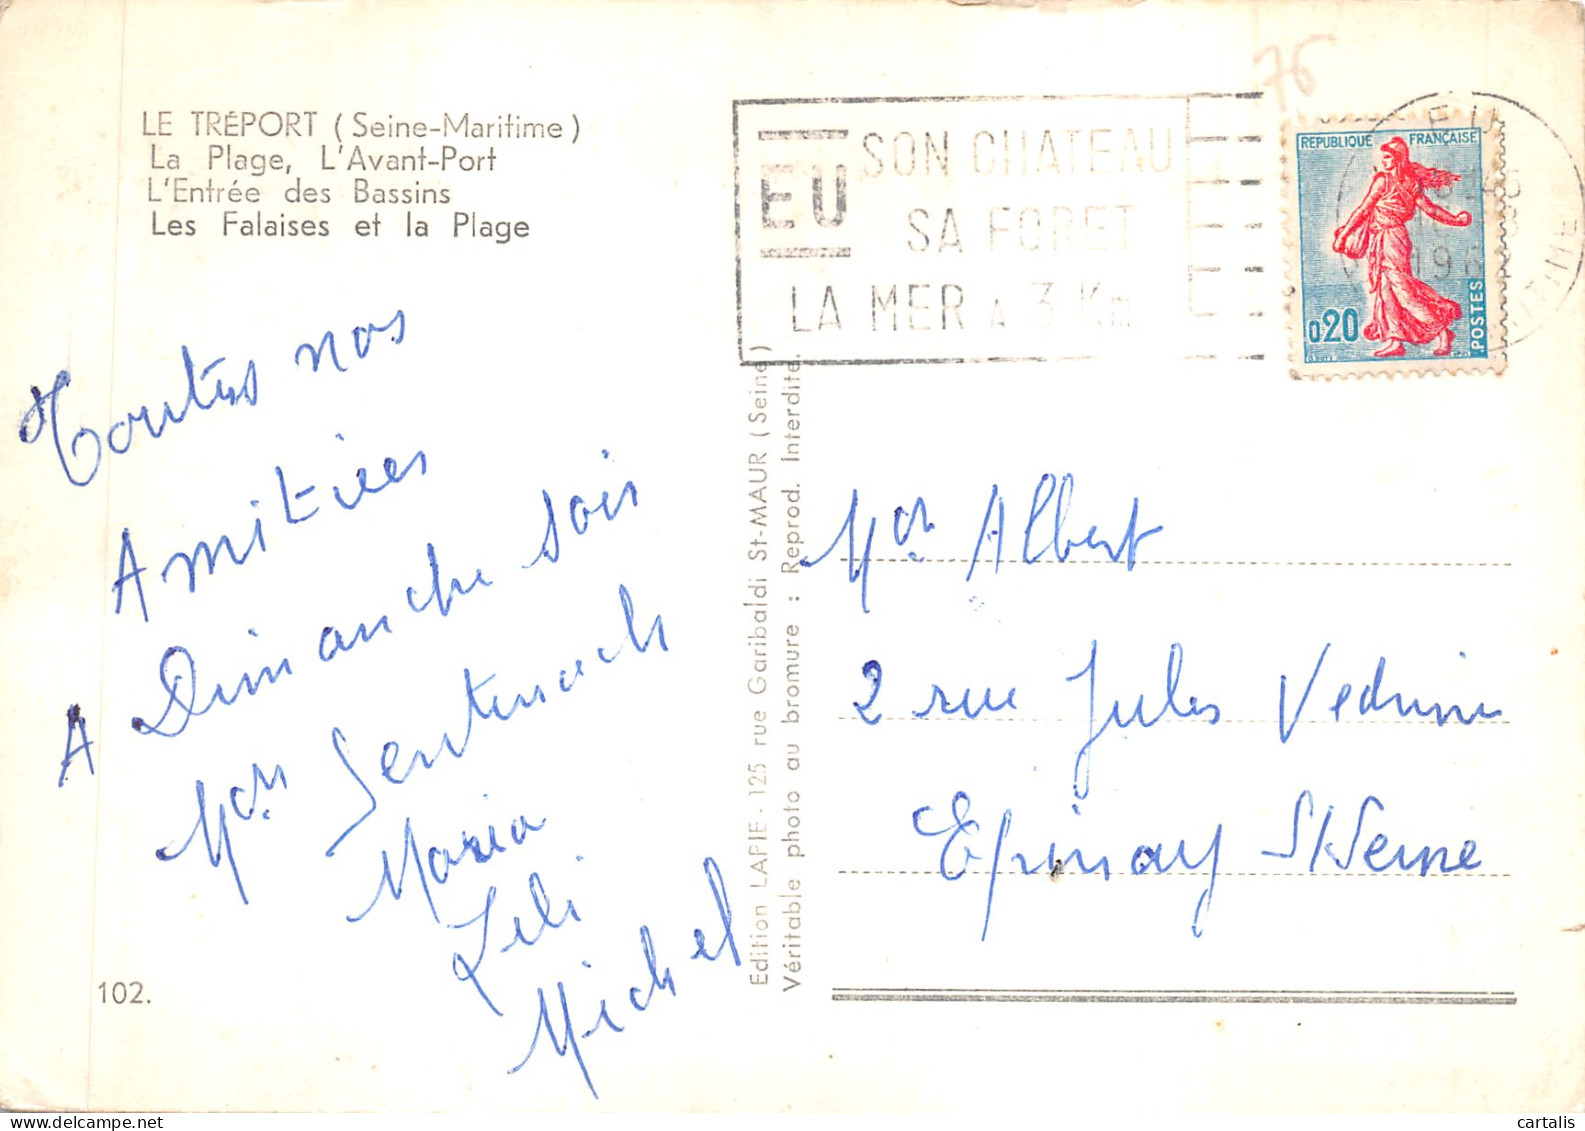 LE TRÉPORT (Seine-Maritime)
La Plage, L'Avant-Port
L'Entrée des Bassins
Les Falaises et la Plage
76
EU
SON CHATEAU
SA FORET
LA MER A 3 Km
EU
196
RITIME
REPUBLIQUE FRANÇAISE
0,20
POSTES
Toutes nos
Amitiées
A Dimanche soir
Mr
Maria
Lili
Michel
102.
Edition LAPIE - 125 rue Garibaldi St-MAUR (Seine)
Véritable photo au bromure : Reprod. Interdite.
Albert
2 rue Jules Vedrine
Epinay S/Seine
cartalis